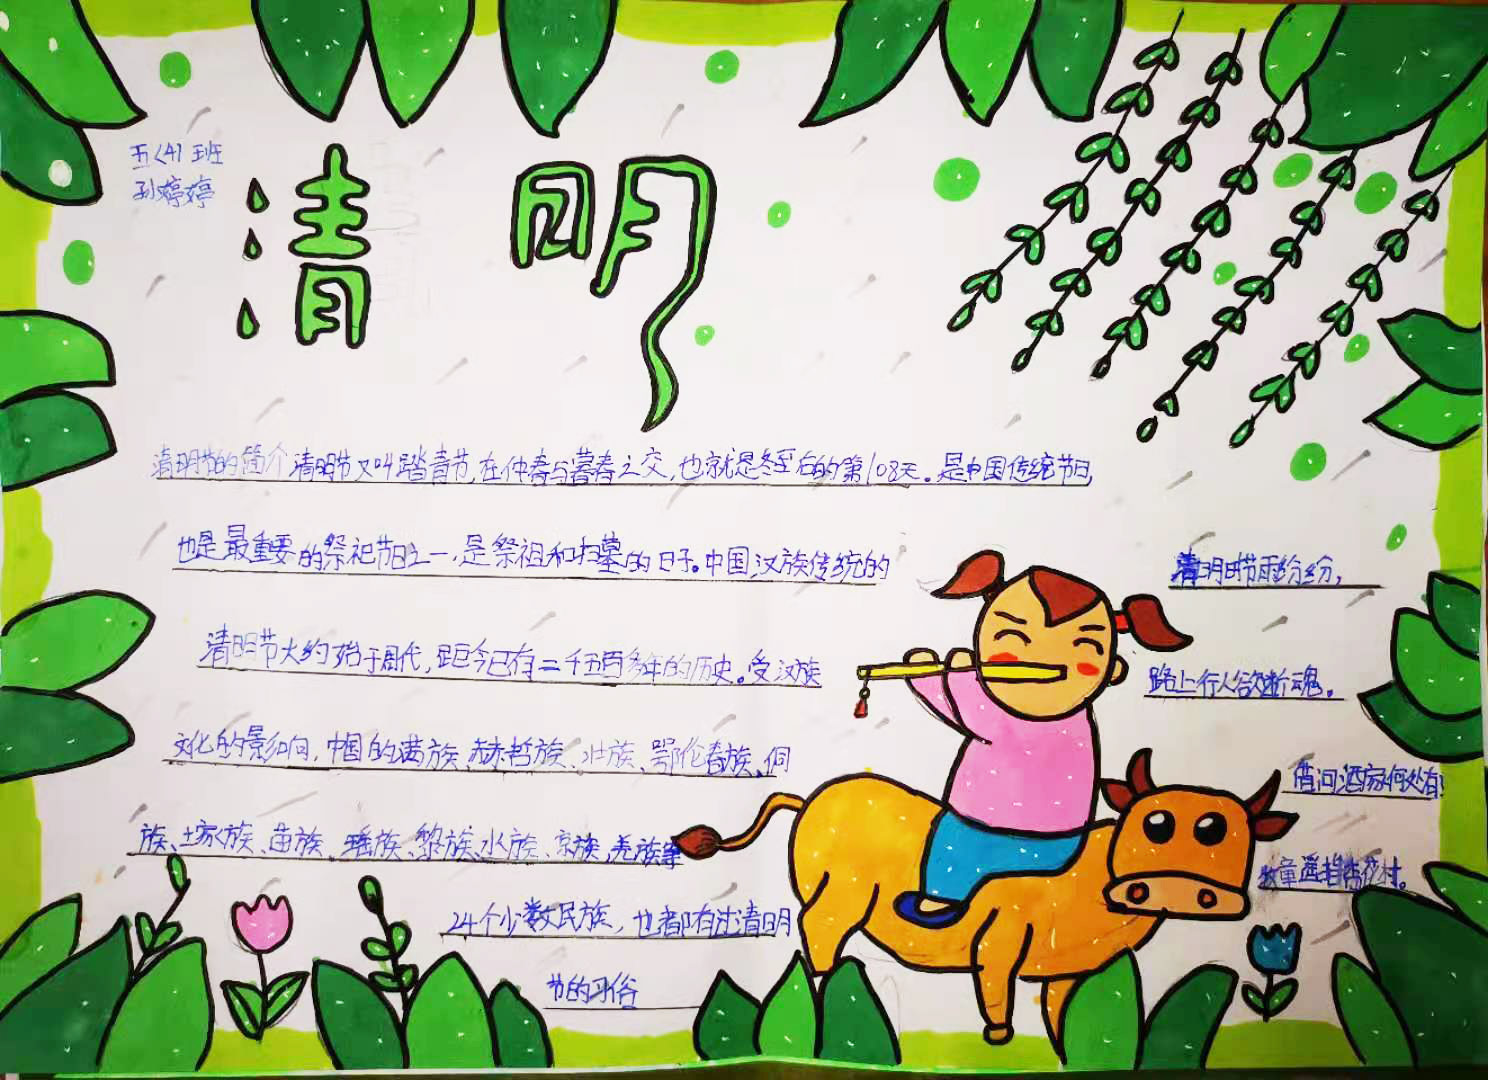 五(4)班
孙婷婷
清明
清明节的简介 清明节又叫踏青节,在仲春与暮春之交,也就是冬至后的第108天。是中国传统节日,
也是最重要的祭祀节日之一,是祭祖和扫墓的日子。中国汉族传统的
清明节大约始于周代,距今已有二千五百多年的历史。受汉族
文化的影响,中国的满族、赫哲族、壮族、鄂伦春族、侗
族、土家族、苗族、瑶族、黎族、水族、京族,羌族等
24个少数民族,也都有过清明
节的习俗
清明时节雨纷纷,
路上行人欲断魂。
借问酒家何处有?
牧童遥指杏花村。